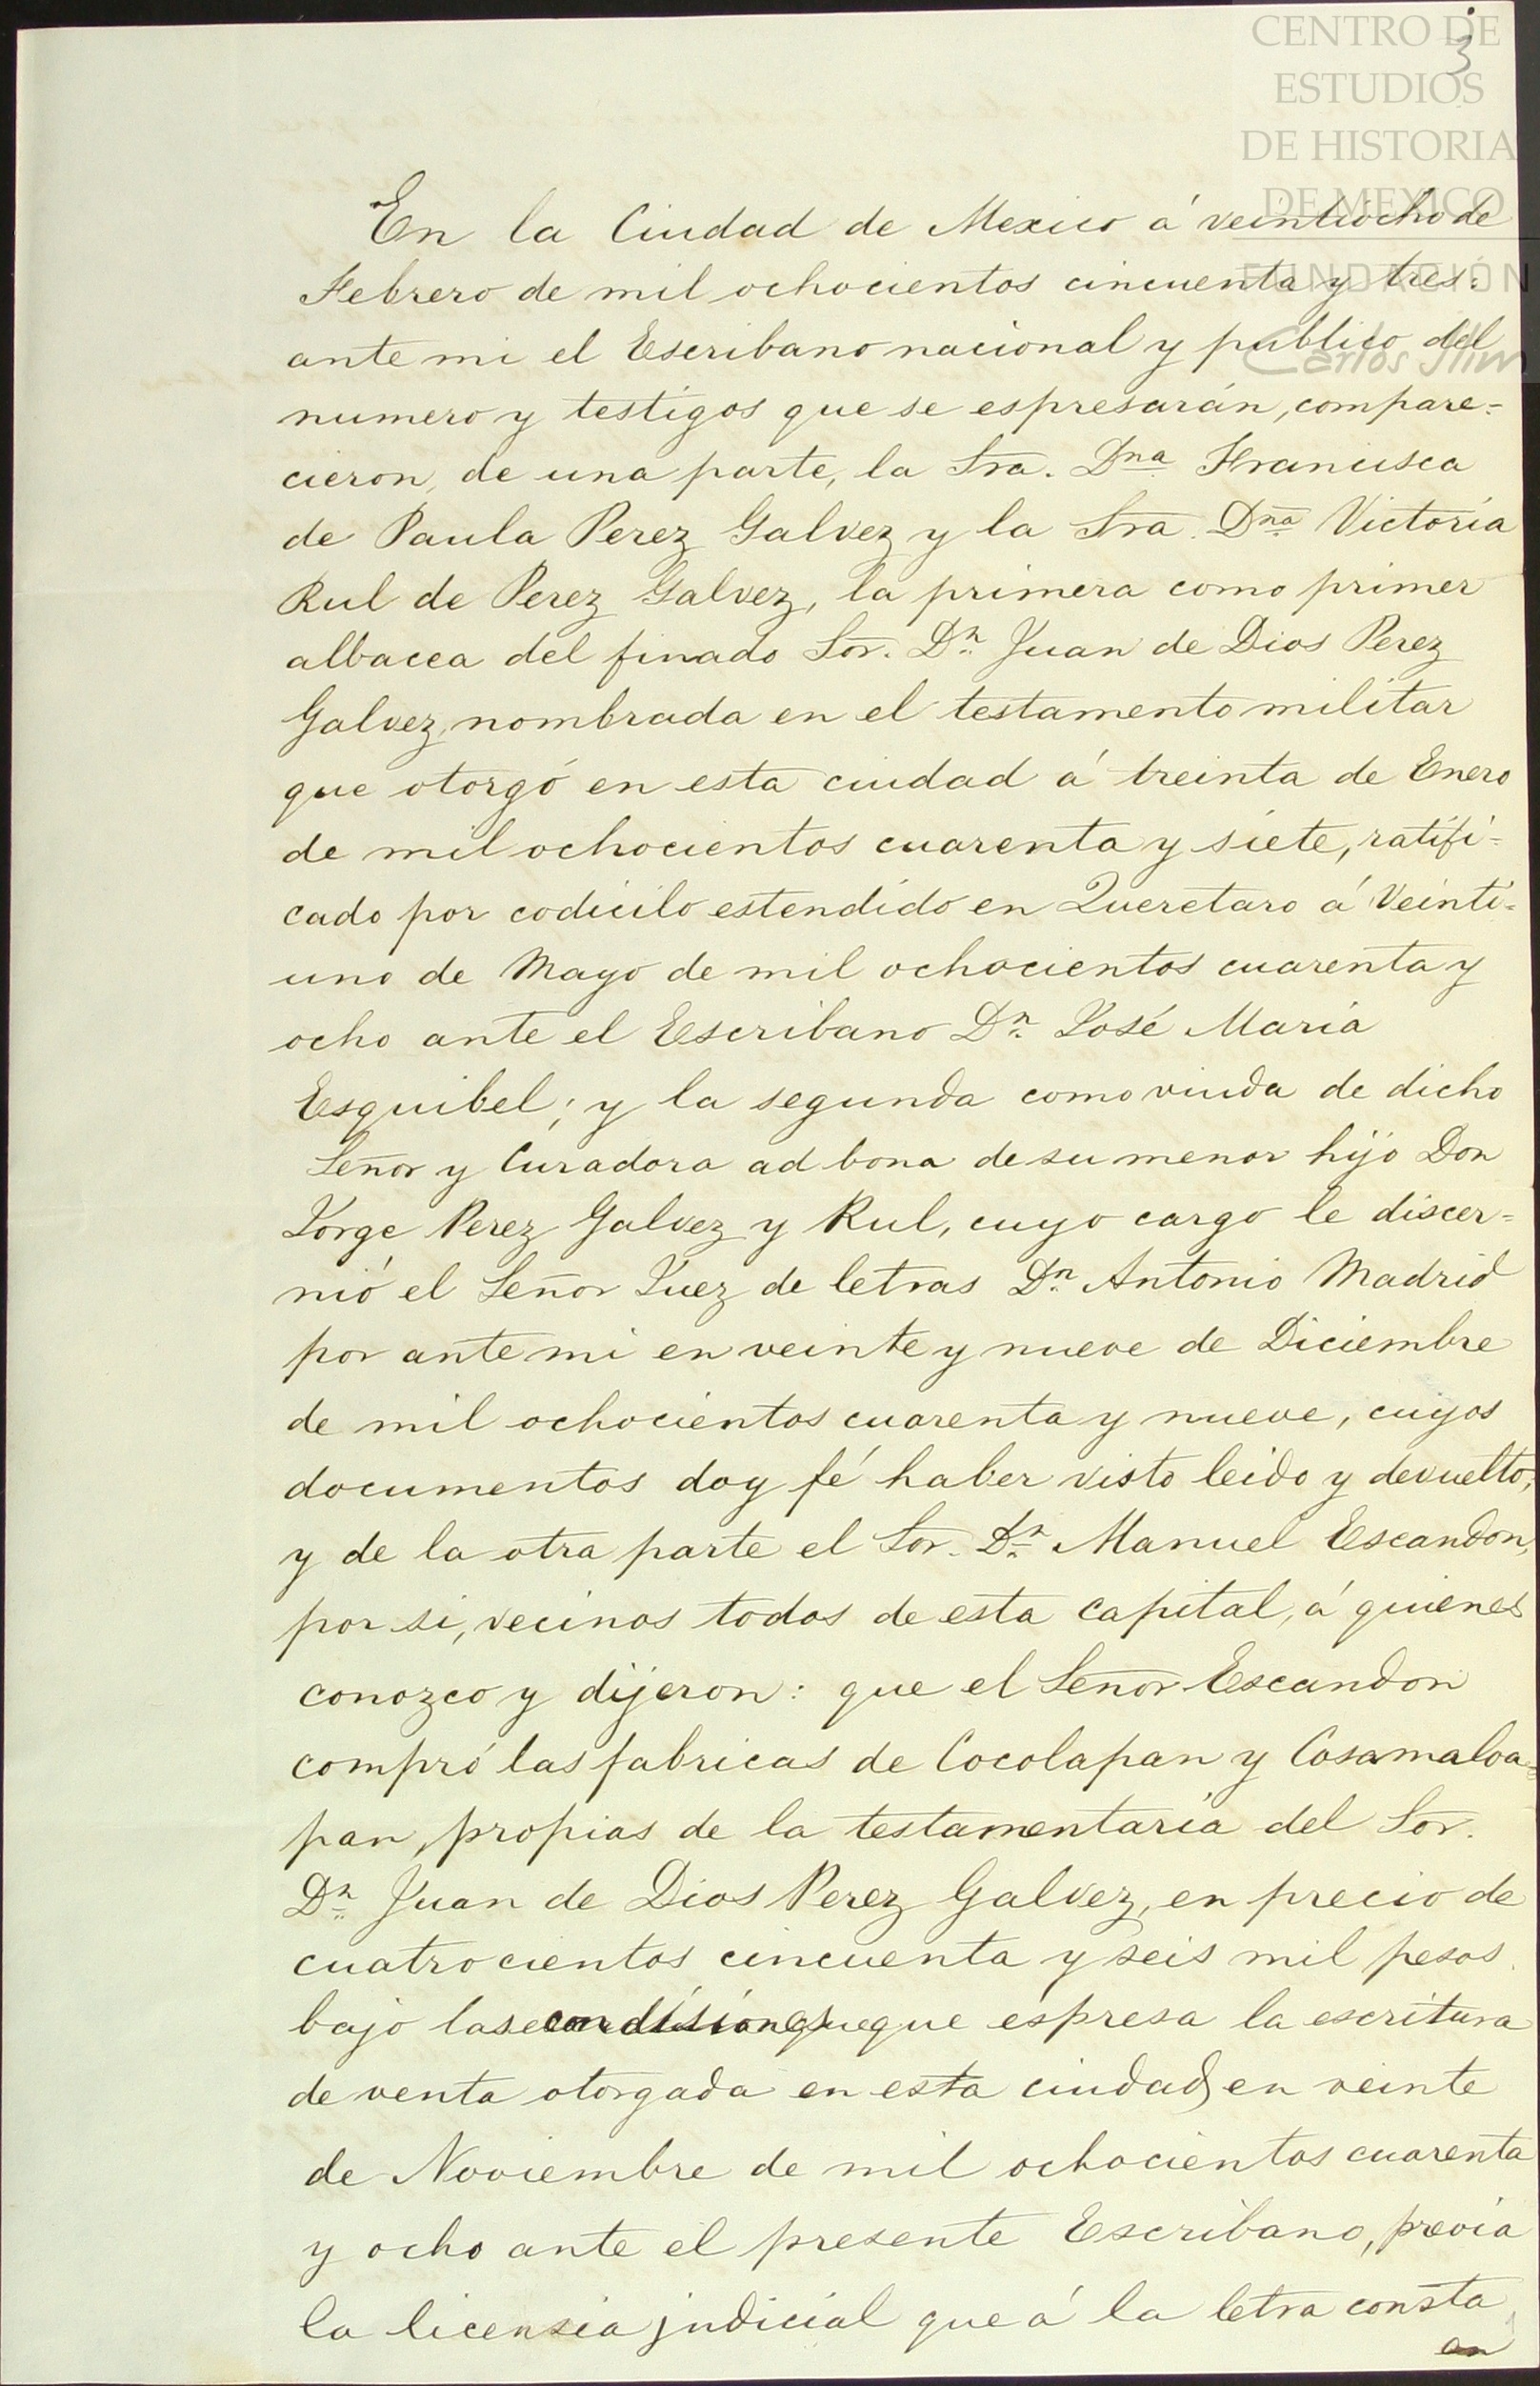 CENTRO DE
ESTUDIOS
DE HISTORIA
DE MEXICO
FUNDACIÓN
Carlos Slim
3
En la Ciudad de Mexico á veintiocho de
Febrero de mil ochocientos cincuenta y tres:
ante mi el Escribano nacional y publico del
numero y testigos que se espresarán, compare=
cieron, de una parte, la Sra. Dna Francisca
de Paula Perez Galvez y la Sra. Dna Victoria
Rul de Perez Galvez, la primera como primer
albacea del finado Sor. Dn Juan de Dios Perez
Galvez, nombrada en el testamento militar
que otorgó en esta ciudad á treinta de Enero
de mil ochocientos cuarenta y siete, ratifi=
cado por codicilo estendido en Queretaro á Veinti=
uno de Mayo de mil ochocientos cuarenta y
ocho ante el Escribano Dn José Maria
Esquibel; y la segunda como viuda de dicho
Señor y Curadora ad bona de su menor hijo Don
Jorge Perez Galvez y Rul, cuyo cargo le discer=
nió el Señor Juez de letras Dn Antonio Madrid
por ante mi en veinte y nueve de Diciembre
de mil ochocientos cuarenta y nueve, cuyos
documentos doy fé haber visto leido y devuelto,
y de la otra parte el Sor. Dn Manuel Escandon,
por si, vecinos todos de esta capital, á quienes
conozco y dijeron: que el Señor Escandon
compró las fabricas de Cocolapan y Cosamaloa=
pan, propias de la testamentaria del Sor.
Dn Juan de Dios Perez Galvez, en precio de
cuatrocientos cincuenta y seis mil pesos
bajo las condisiones que espresa la escritura
de venta otorgada en esta ciudad en veinte
de Noviembre de mil ochocientos cuarenta
y ocho ante el presente Escribano, previa
la licensia judicial que á la letra consta
en